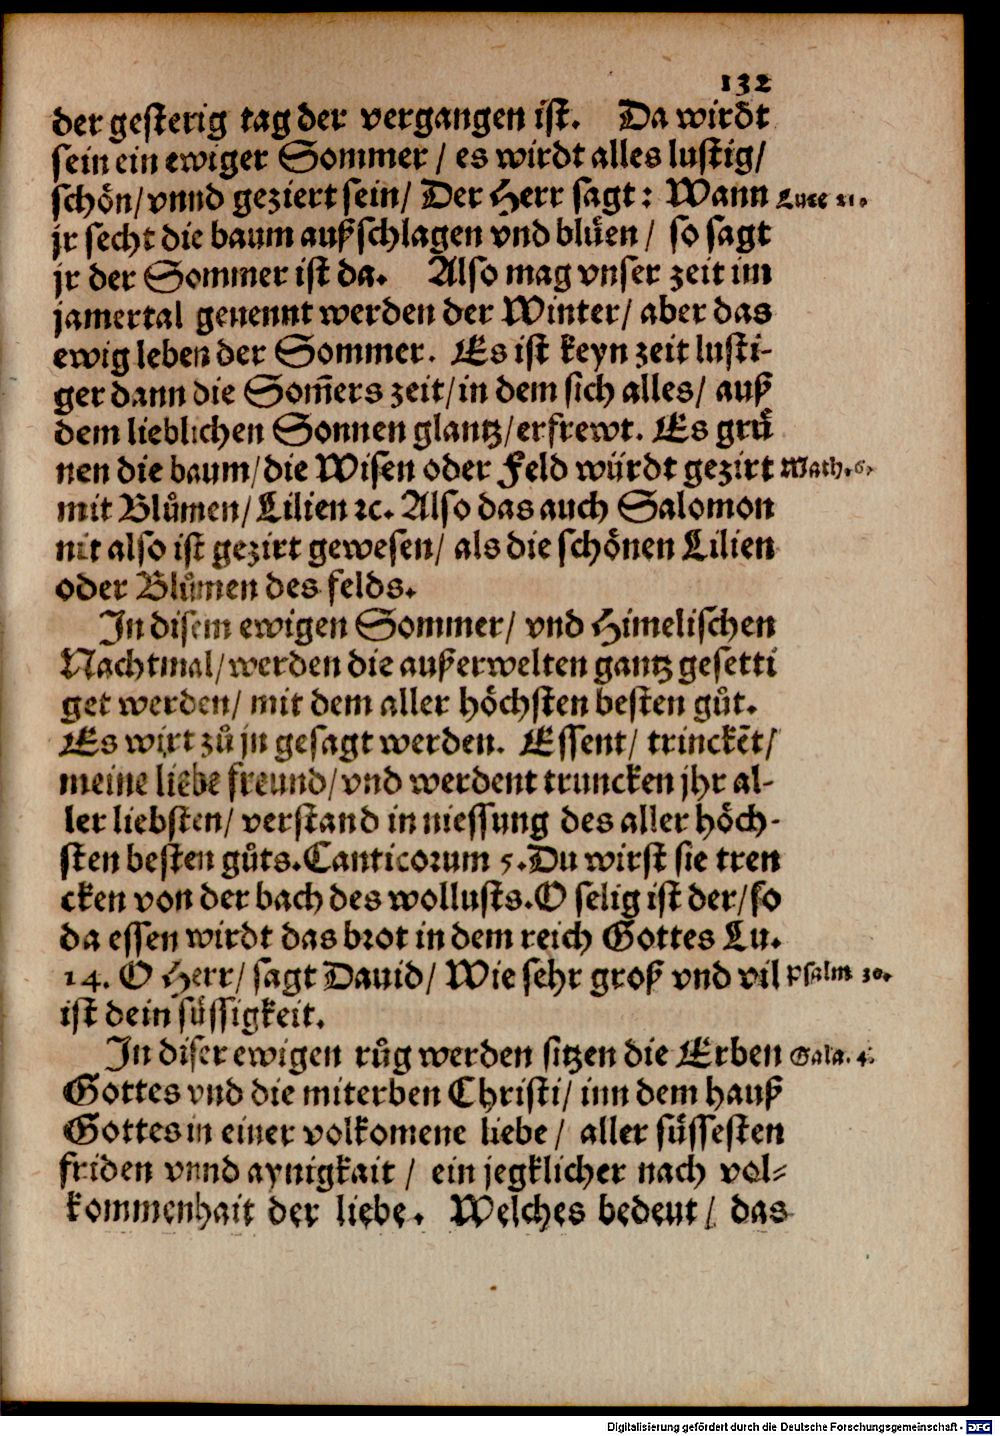 132
der gesterig tag der vergangen ist. Da wirdt
sein ein ewiger Sommer / es wirdt alles lustig/
schön/vnnd geziert sein/ Der Herr sagt: Wann Luce 21.
jr secht die baum außschlagen vnd blüen / so sagt
jr der Sommer ist da. Also mag vnser zeit im
jamertal genennt werden der Winter/ aber das
ewig leben der Sommer. Es ist keyn zeit lusti-
ger dann die Som̃ers zeit/in dem sich alles/ auß
dem lieblichen Sonnen glantz/erfrewt. Es grů
nen die baum/die Wisen oder Feld würdt gezirt Math.6.
mit Blůmen/ Lilien ꝛc. Also das auch Salomon
nit also ist gezirt gewesen/ als die schönen Lilien
oder Blůmen des felds.
In disem ewigen Sommer/ vnd Himelischen
Nachtmal/werden die außerwelten gantz gesetti
get werden/ mit dem aller höchsten besten gůt.
Es wirt zů jn gesagt werden. Essent/ trinckẽt/
meine liebe freund/vnd werdent truncken jhr al-
ler liebsten/ verstand in niessung des aller höch-
sten besten gůts.Canticorum 5.Du wirst sie tren
cken von der bach des wollusts.O selig ist der/so
da essen wirdt das brot in dem reich Gottes Lu.
14. O Herr/ sagt Dauid/ Wie sehr groß vnd vil Psalm 30.
ist dein süssigkeit.
In diser ewigen růg werden sitzen die Erben Gala. 4.
Gottes vnd die miterben Christi/ inn dem hauß
Gottes in einer volkomene liebe / aller süssesten
friden vnnd aynigkait / ein jegklicher nach vol-
kommenhait der liebe. Welches bedeut / das
Digitalisierung gefördert durch die Deutsche Forschungsgemeinschaft - DFG